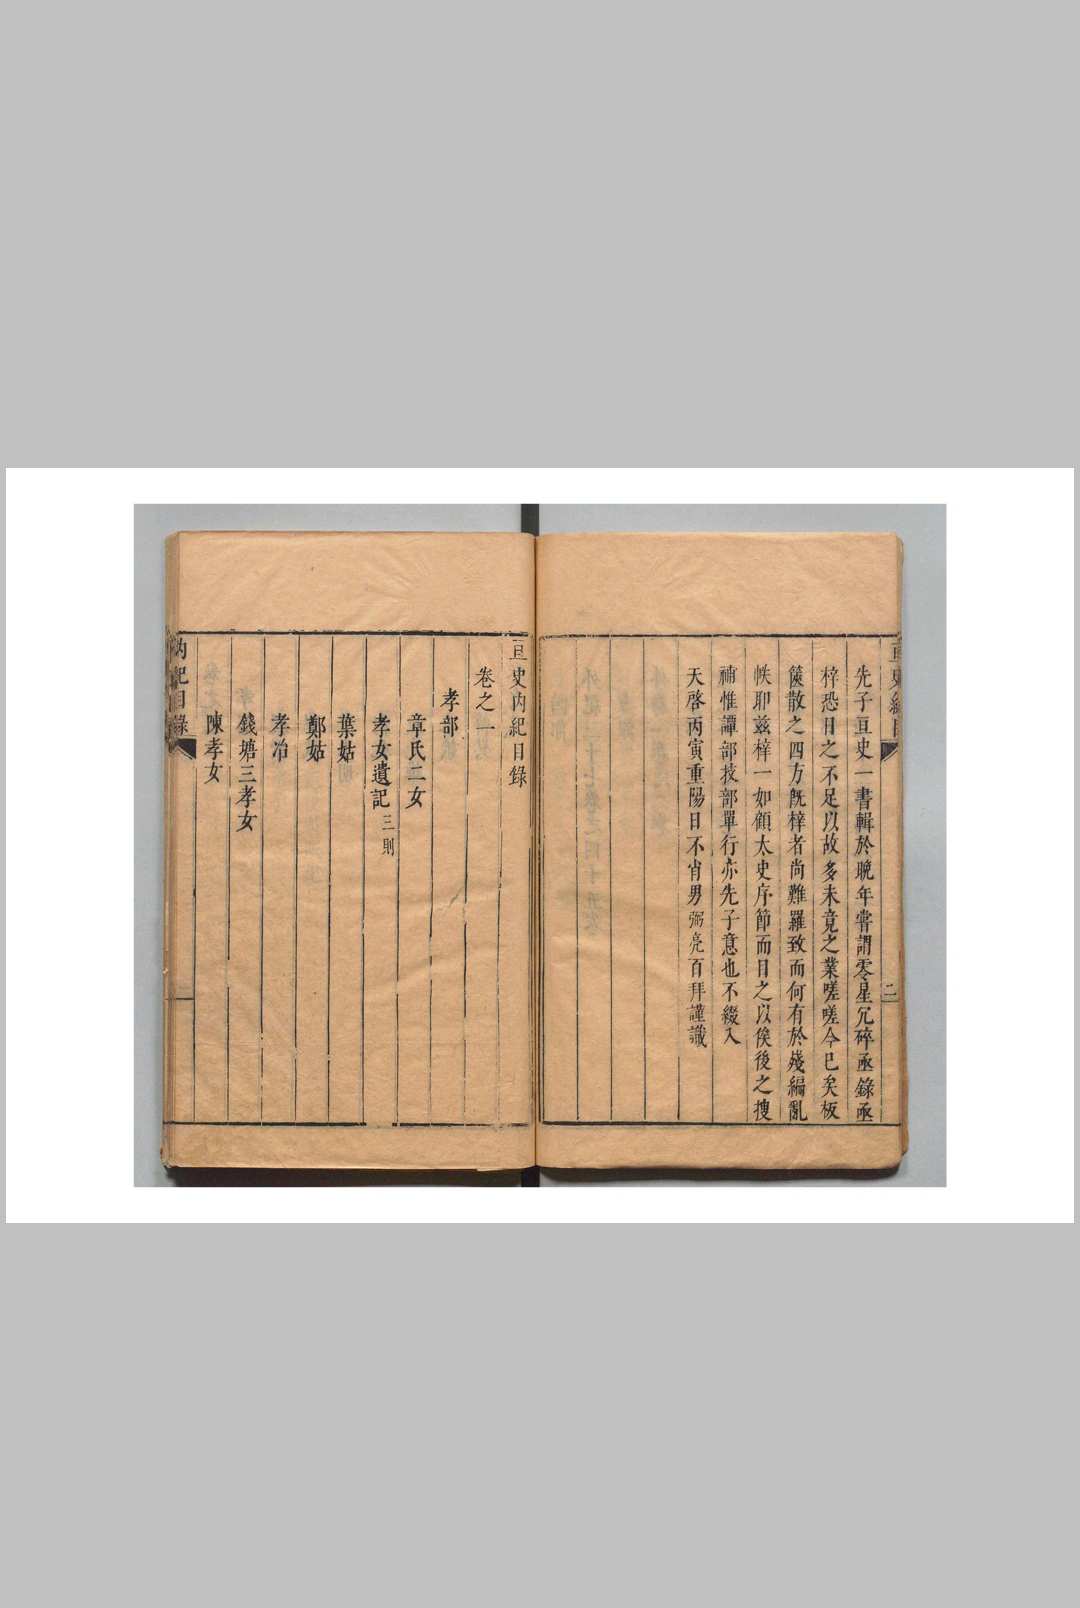 亘史總目
二
先子亘史一書輯於晚年嘗謂零星冗碎亟錄亟
梓恐日之不足以故多未竟之業嗟嗟今已矣板
篋散之四方旣梓者尚難羅致而何有於殘編亂
帙耶兹梓一如顧太史序節而目之以俟後之搜
補惟譚部技部單行亦先子意也不綴入
天啓丙寅重陽日不肖男弼亮百拜謹識
亘史内紀目錄
卷之一
孝部
章氏二女
孝女遺記三則
葉姑
鄭姑
孝冶
錢塘三孝女
陳孝女
内紀目錄
一